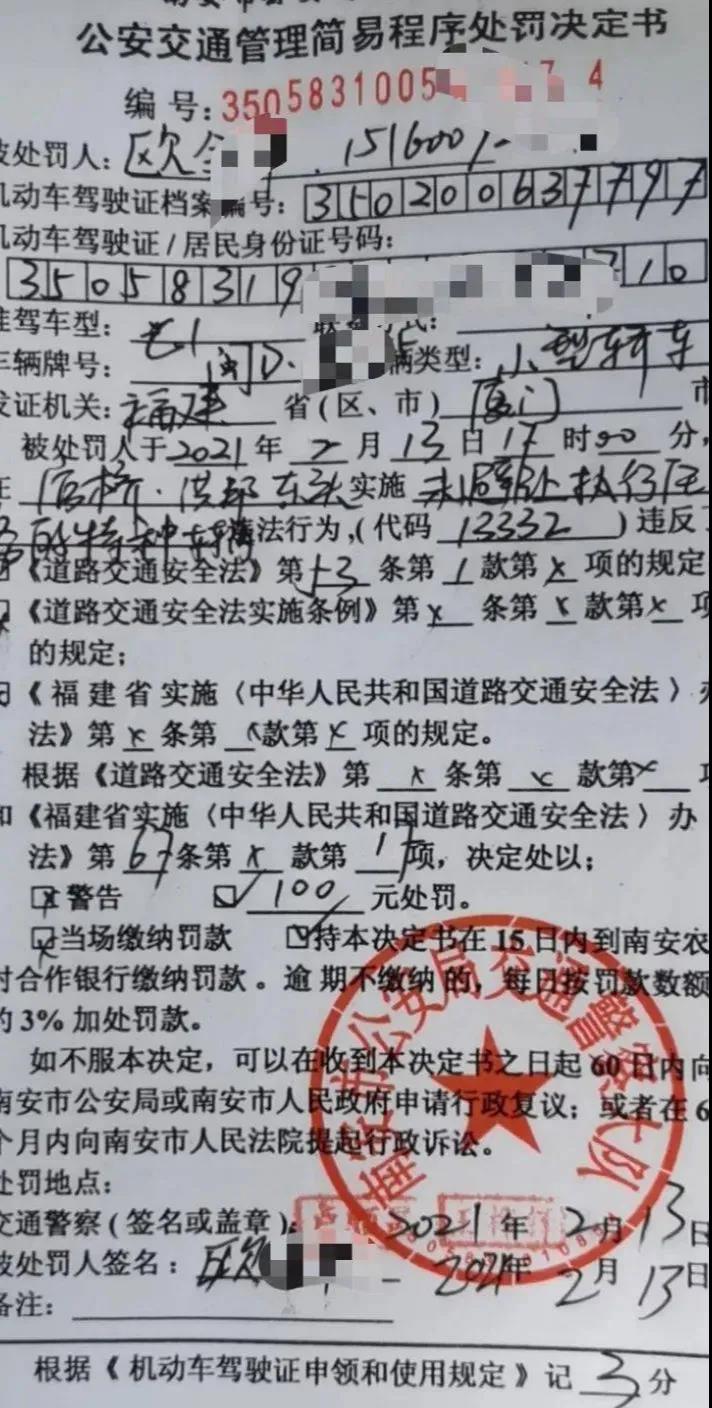 公安交通管理简易程序处罚决定书
编号:3505831005 17 4
被处罚人:欧 1516001
机动车驾驶证档案编号:350200637797
机动车驾驶证/居民身份证号码:
35058319 710
准驾车型: 联系方式:
车辆牌号: 闽D· 车辆类型:小型轿车
发证机关:福建 省(区、市)厦门 市
被处罚人于2021年2月13日17时00分,
在 官桥·洪邦东头实施 未避让执行任
务的特种车辆违法行为,(代码 13332 )违反了
《道路交通安全法》第53条第1款第x项的规定
《道路交通安全法实施条例》第x条第x款第x项
的规定;
《福建省实施〈中华人民共和国道路交通安全法〉办
法》第x条第 款第x项的规定。
根据《道路交通安全法》第x条第x款第x项
和《福建省实施〈中华人民共和国道路交通安全法〉办
法》第67条第x款第17项,决定处以;
☒警告 ☑100元处罚。
☒当场缴纳罚款 ☑持本决定书在15日内到南安农
村合作银行缴纳罚款。逾期不缴纳的,每日按罚款数额
的3%加处罚款。
如不服本决定,可以在收到本决定书之日起60日内向
南安市公安局或南安市人民政府申请行政复议;或者在6
个月内向南安市人民法院提起行政诉讼。
处罚地点:
交通警察(签名或盖章): 2021年2月13日
被处罚人签名:欧 2021年2月13日
备注:
南安市公安局交通警察大队
根据《机动车驾驶证申领和使用规定》记3分